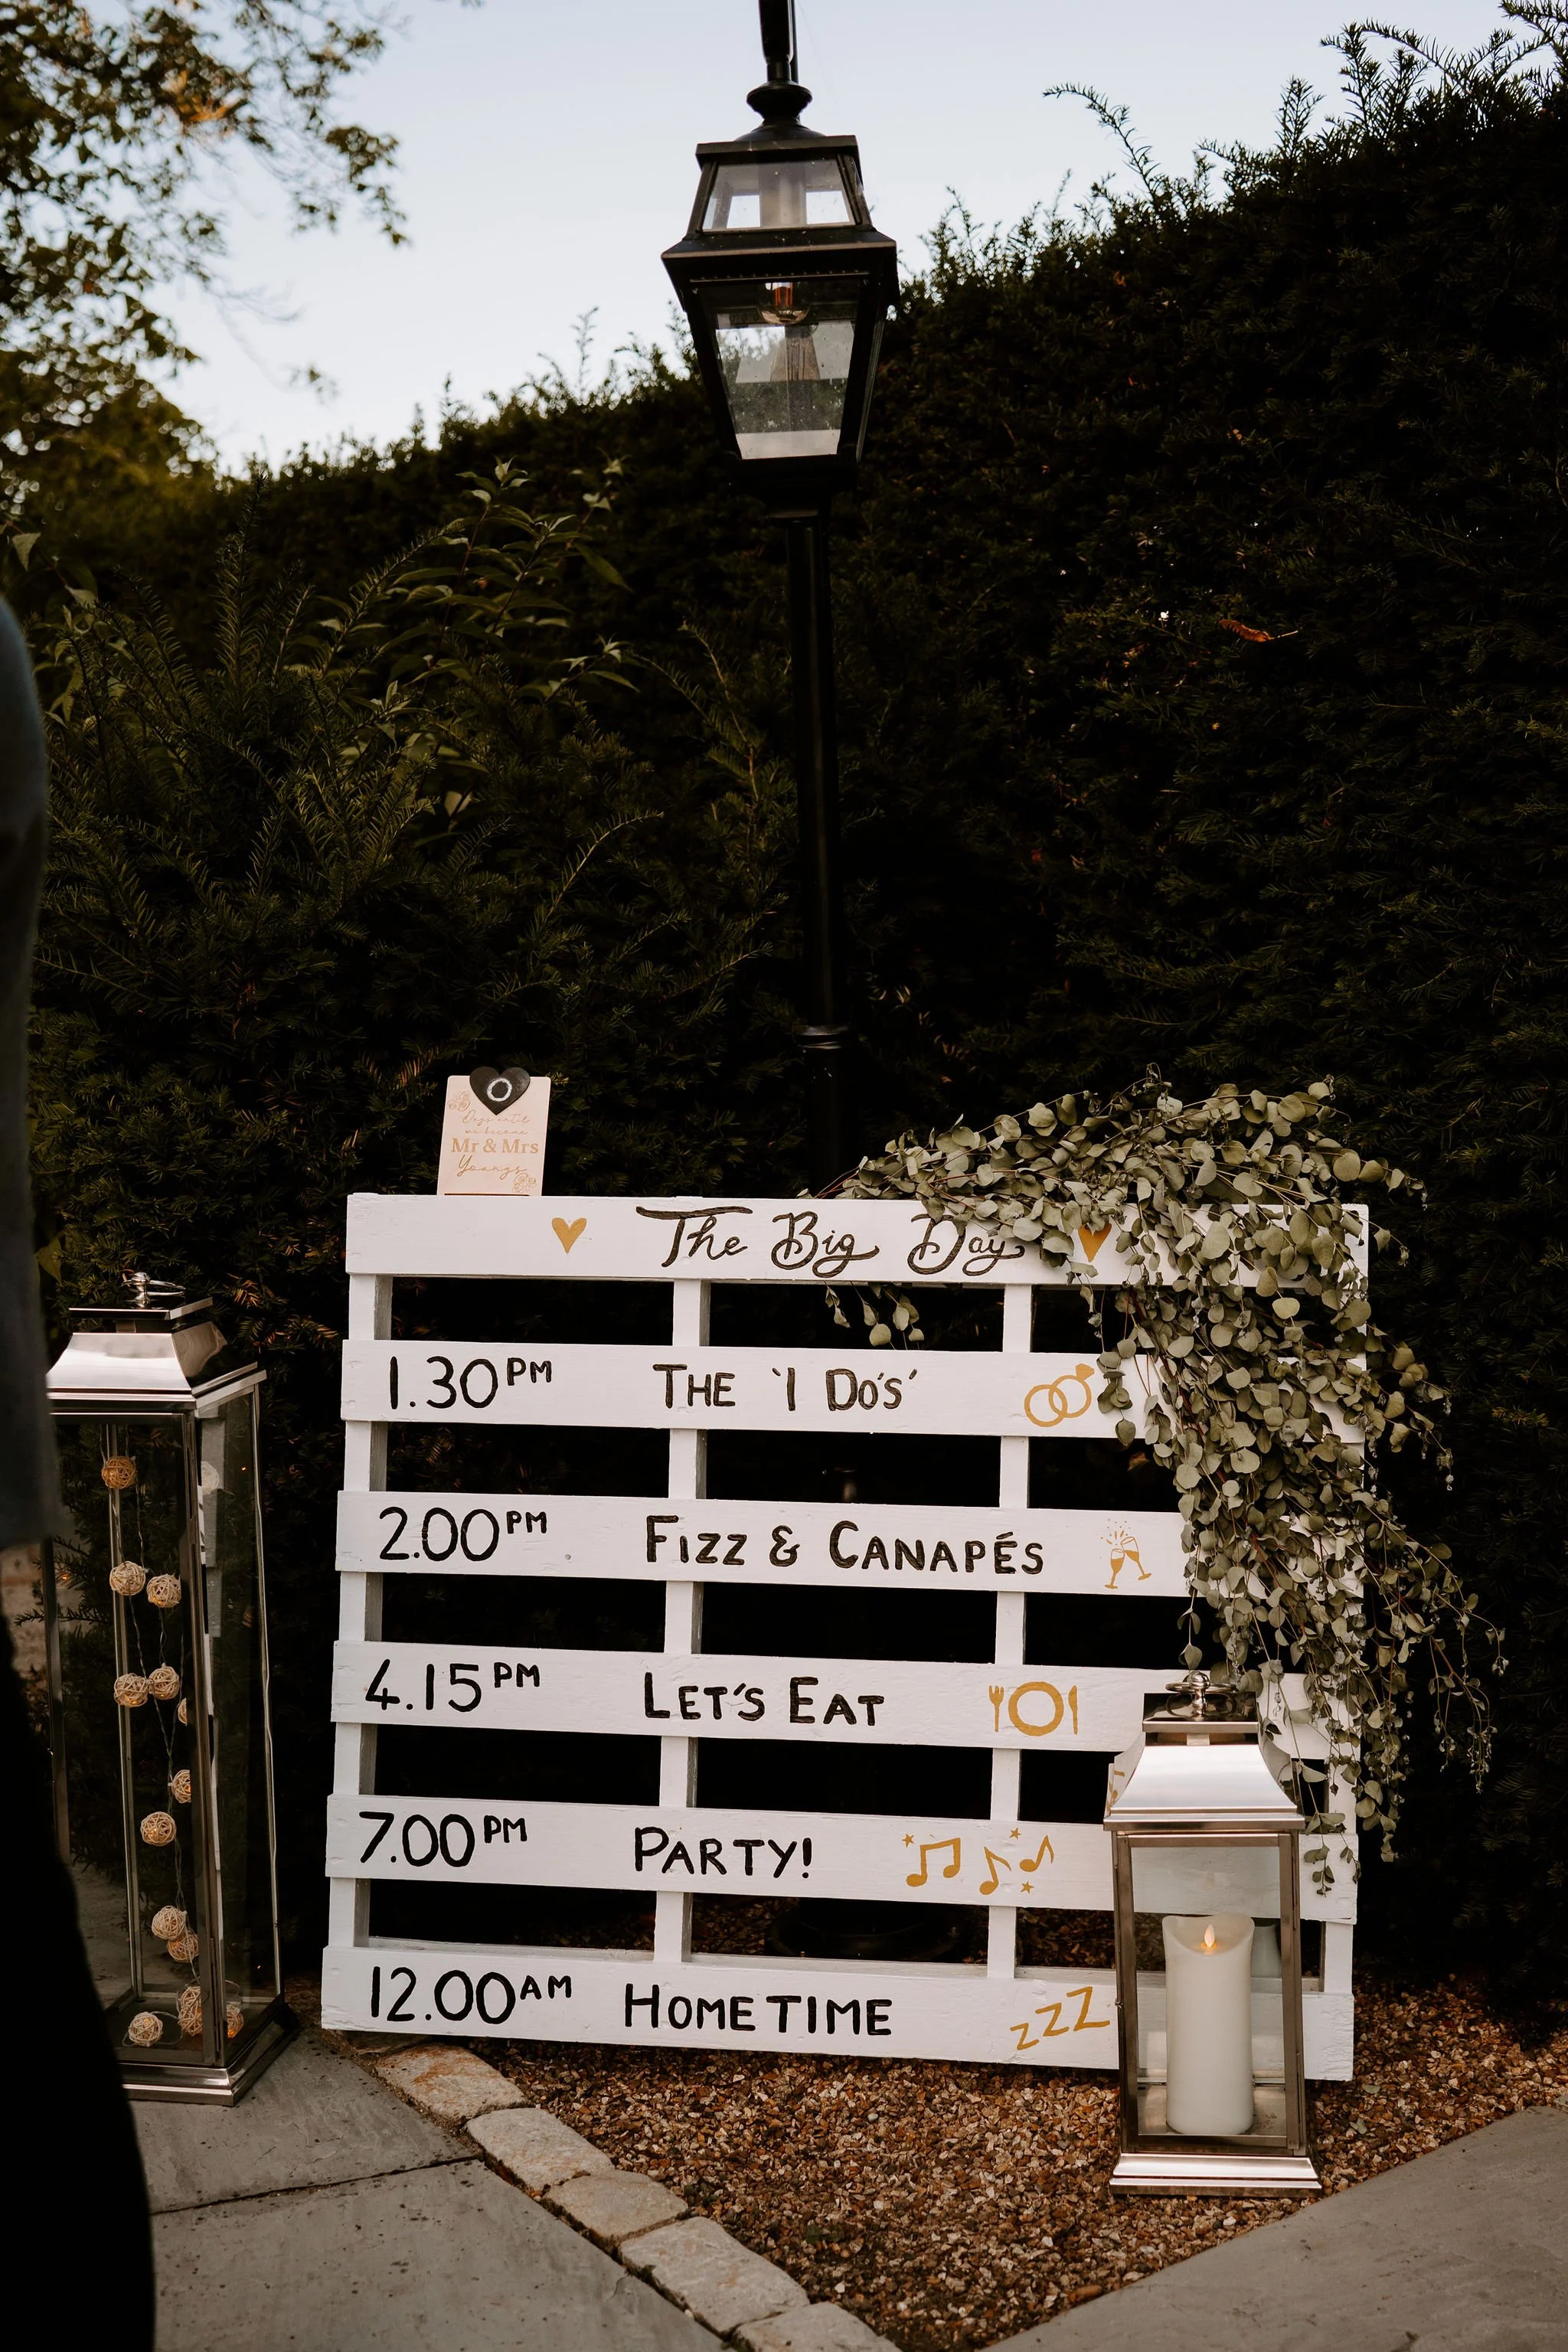 Days until
we become
Mr & Mrs
Youngs
The Big Day
1.30PM THE 'I DO'S'
2.00PM FIZZ & CANAPÉS
4.15PM LET'S EAT
7.00PM PARTY!
12.00AM HOMETIME
zzZ